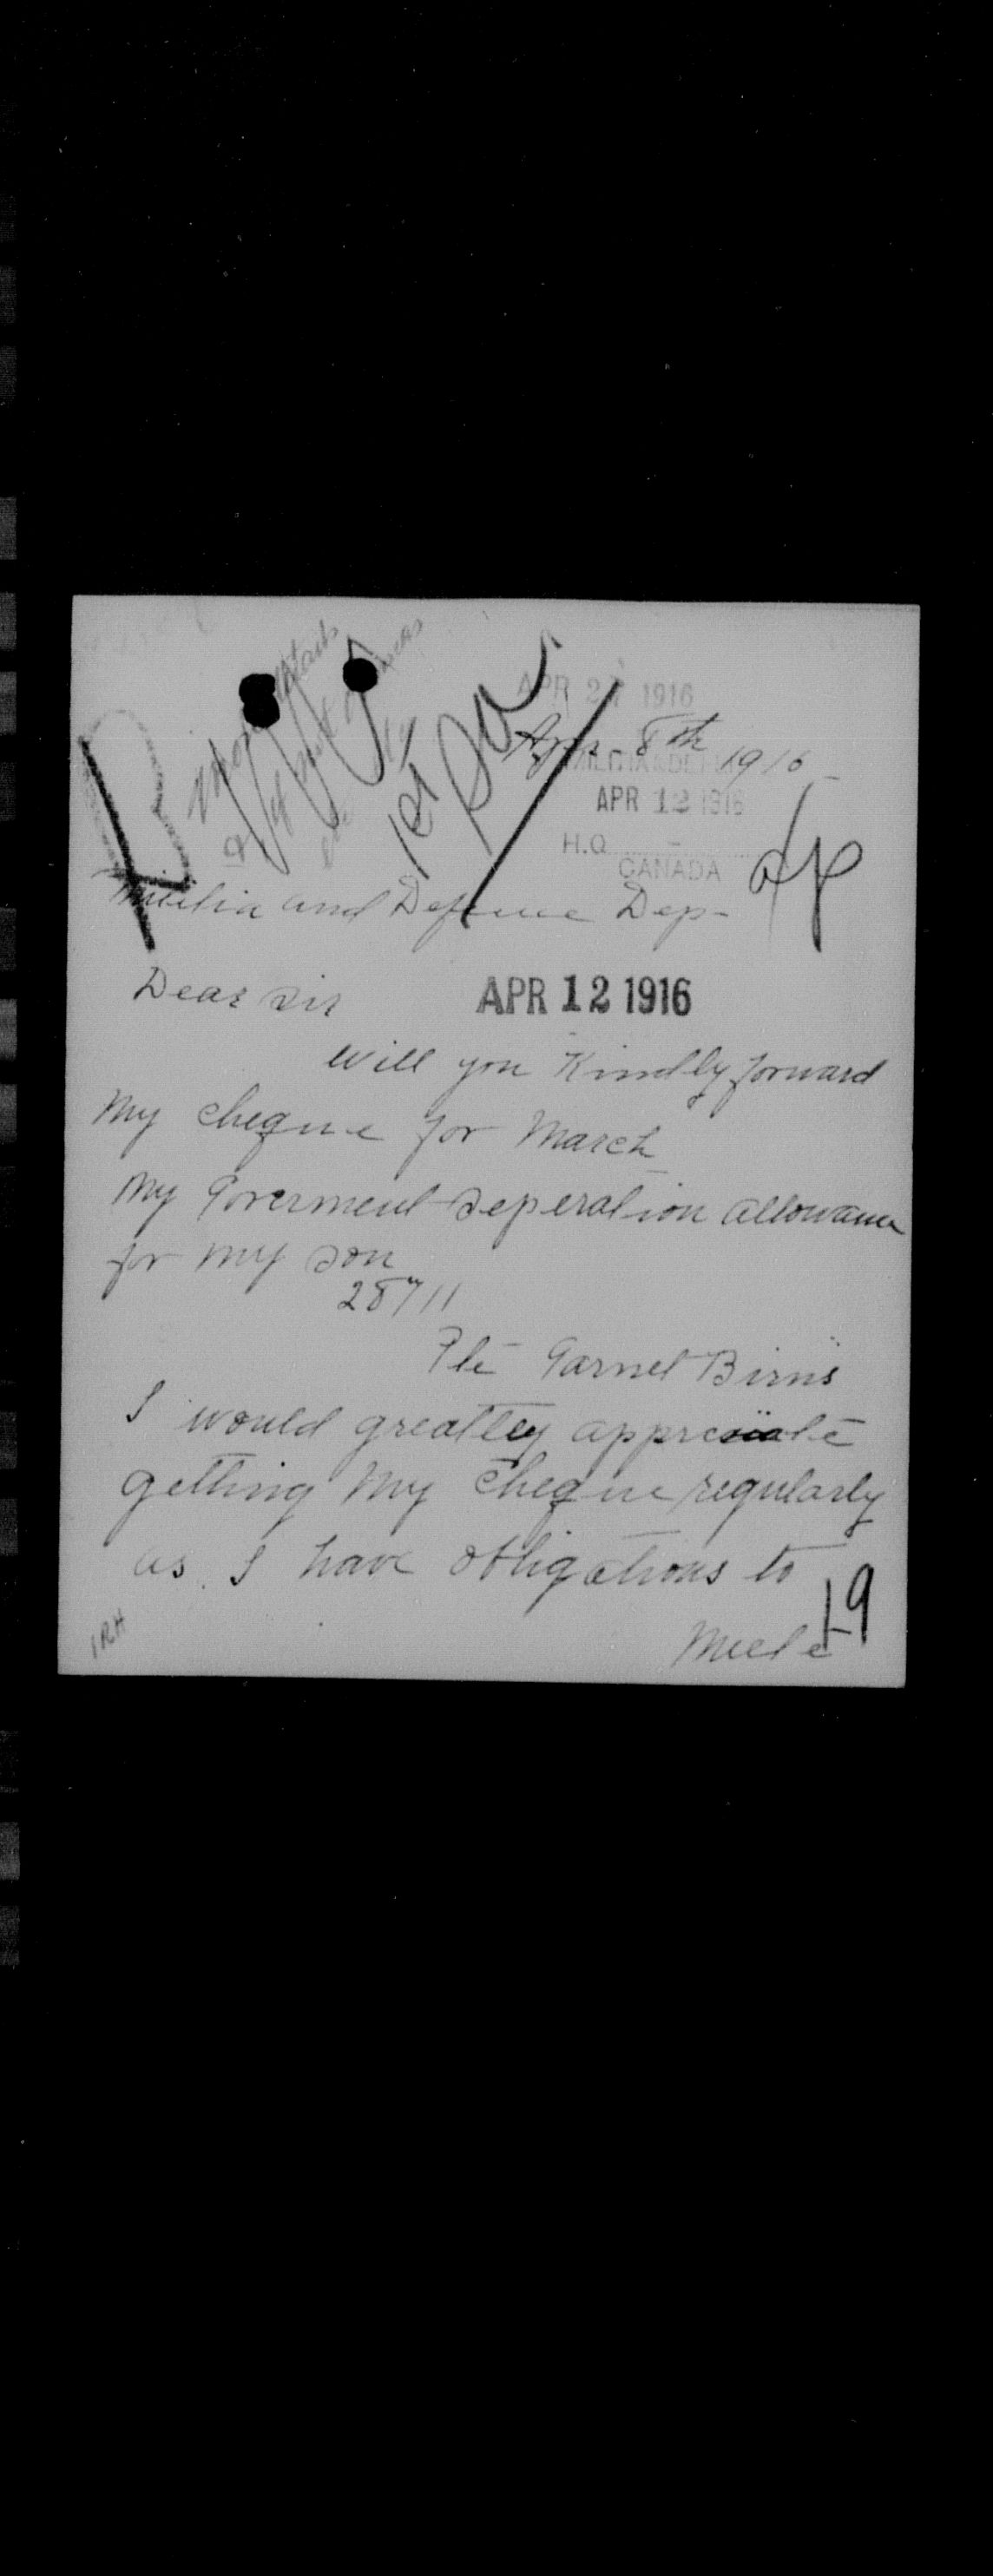 APR 27 1916
Apr 8th 1916
MILITIA & DEFENCE
APR 12 1916
H.Q.
CANADA
Militia and Defence Dep-
Dear Sir
APR 12 1916
Will you Kindly forward
My cheque for March
My Goverment Seperation Allowance
for my son
28711
Pte Garnet Birns
I would greatley appreciate
getting My Cheque regularly
as I have obligations to
Meet
19
IRH